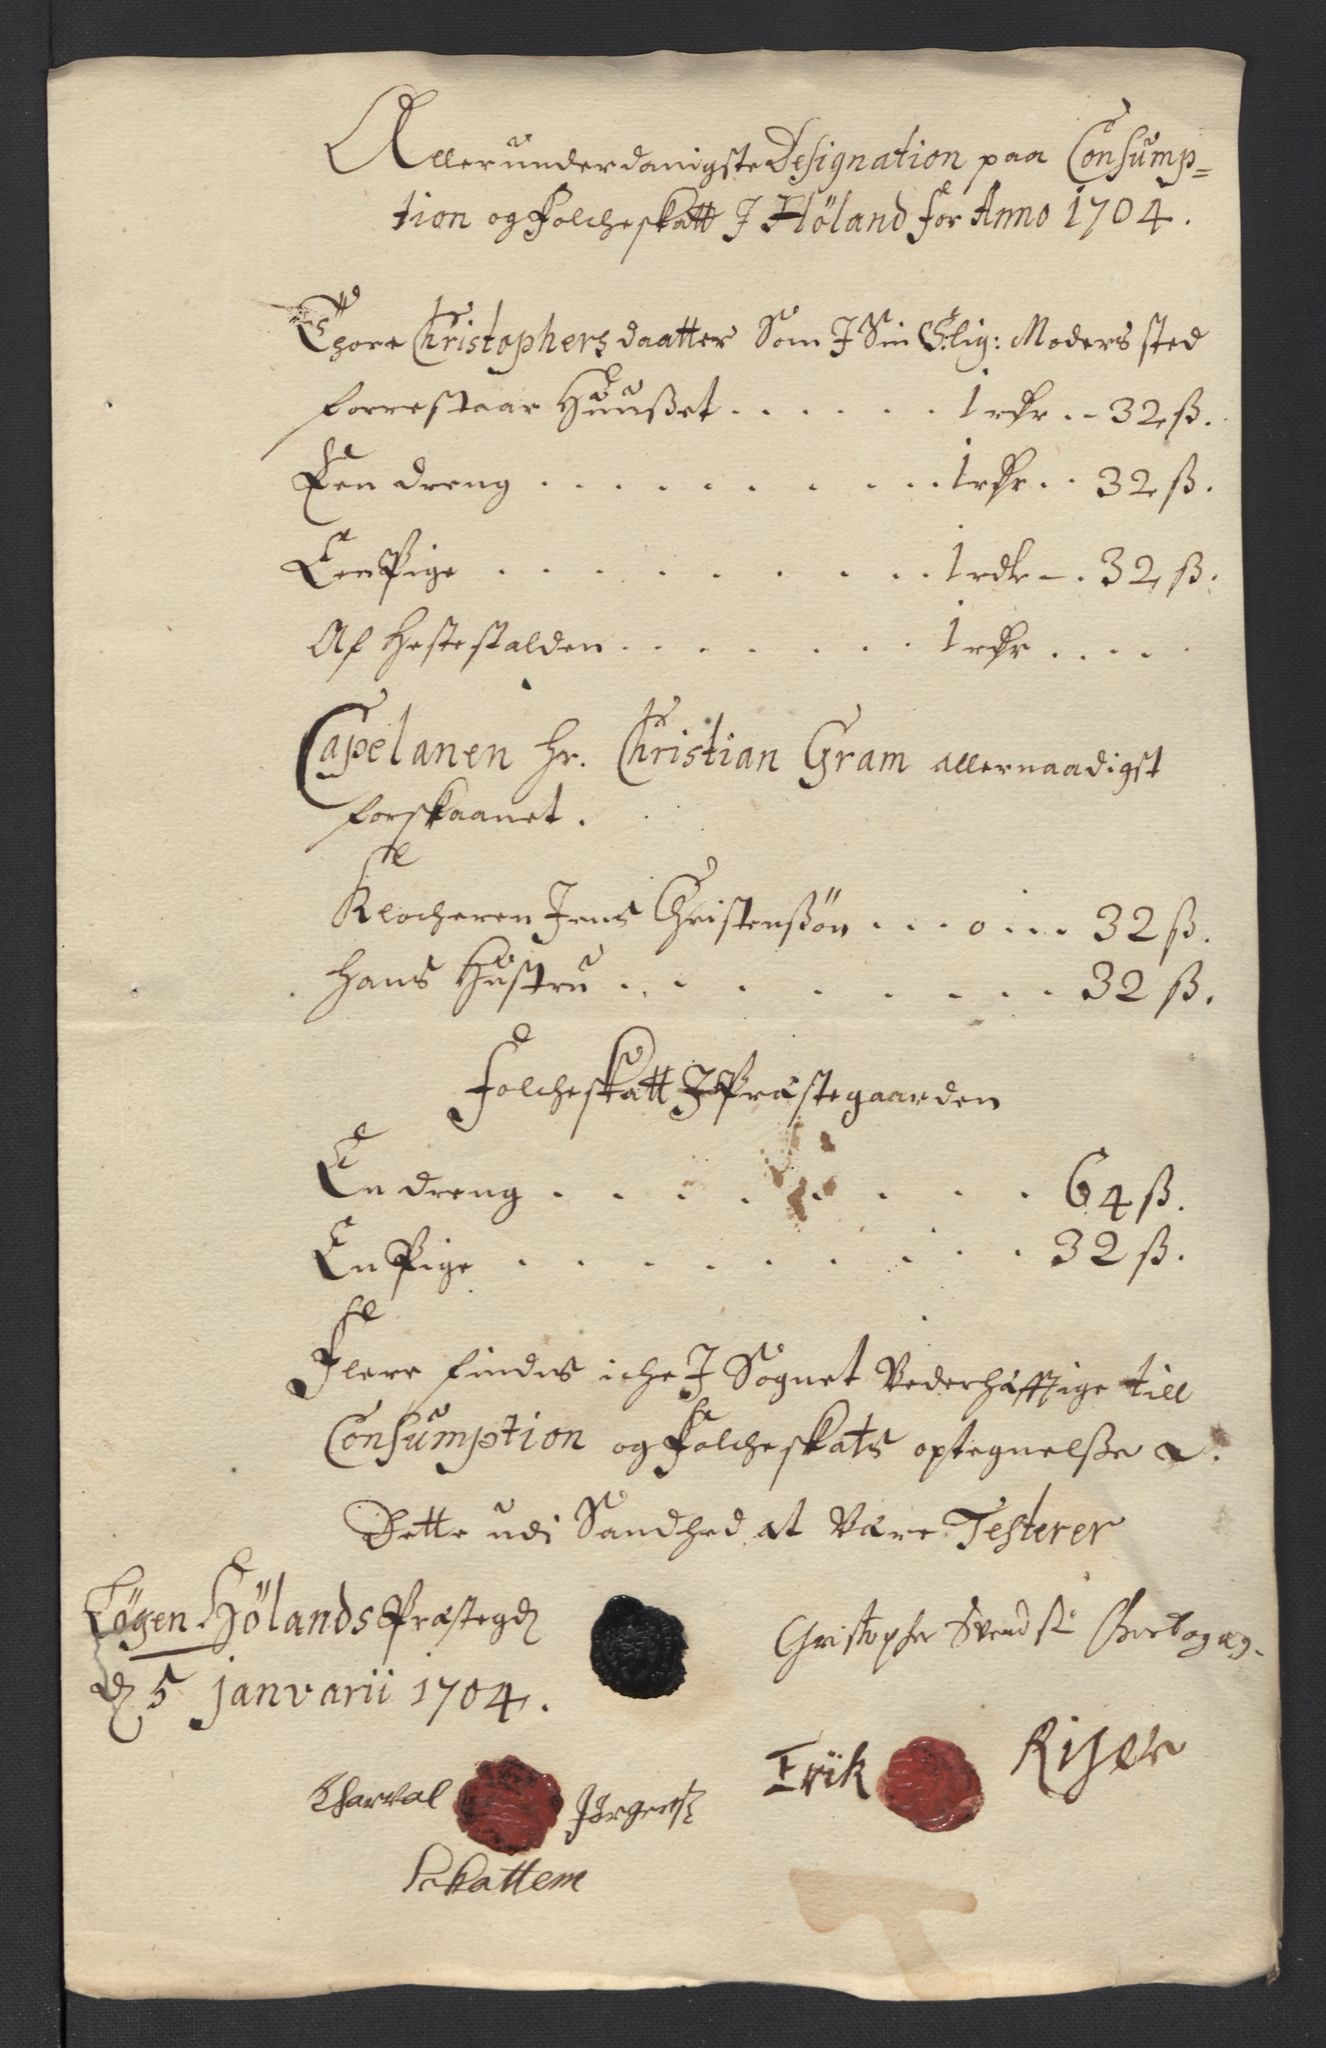 Allerunderdanigste Designation paa Consump=
tion og Folcheskatt J Höland for Anno 1704.
Thore Christophersdaatter Som J Sin Sl: Moders sted
forrestaar Huußet . . . . . . 1 rdr .. 32 ß.
Een dreng . . . . . . . . . 1 rdr .. 32 ß.
Een Pige . . . . . . . . . 1 rdr – . 32 ß.
Af Hestestalden . . . . . . . 1 rdr . . . . .
Capelanen hr. Christian Gram allernaadigst
forskaanet .
Klocheren Jens Christenßön . . . 0 . . . 32 ß.
Hans Hustru . . . . . . . . 32 ß.
Folcheskatt J Præstegaarden
En dreng . . . . . . . . . 64 ß.
En Pige . . . . . . . . . 32 ß.
Flere findes iche J Sognet Vederhäfftige till
Consumption og Folcheskats optegnelße
Dette udi Sandhed at Være Testerer
Hölands Præstegd
d 5 janvarii 1704.
Christopher Svends
Erik Riser
Jørgens
Skattem